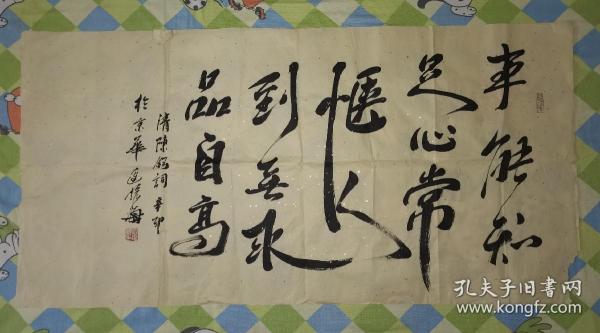 事能知
足心常
惬人
到無求
品自高
清陈
詞辛卯
於京華
孔夫子旧书网
www.kongfz.com